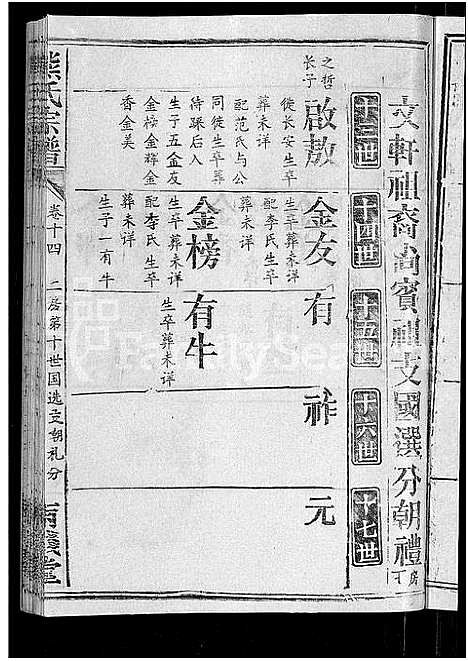 文軒祖裔尚賓祖支國選分朝禮下房
十三世
十四世
十五世
十六世
十七世
之哲
长子
啟敖
徙长安生卒
葬未详
配范氏与公
同徙生卒葬
待踩后入
生子五金友
金榜金辉金
香金美
金友
生卒葬未详
配李氏生卒
葬未详
金榜
生卒葬未详
配李氏生卒
葬未详
生子一有牛
有
有牛
生卒葬未详
祚
元
熊氏宗譜
卷十四
二居第十世国选支朝礼分
FamilySearch